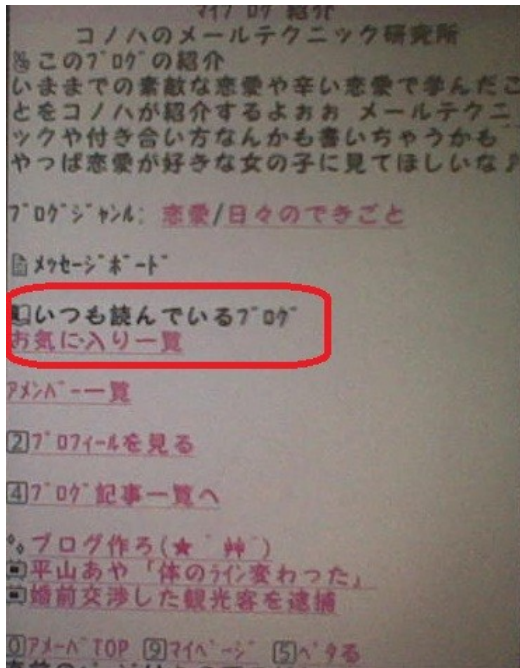 ﾏｲﾌﾞﾛｸﾞ紹介
コノハのメールテクニック研究所
このﾌﾞﾛｸﾞの紹介
いままでの素敵な恋愛や辛い恋愛で学んだこ
とをコノハが紹介するよぉぉ メールテクニ
ックや付き合い方なんかも書いちゃうかも
やっぱ恋愛が好きな女の子に見てほしいな♪
ﾌﾞﾛｸﾞｼﾞｬﾝﾙ: 恋愛/日々のできごと
ﾒｯｾｰｼﾞﾎﾞｰﾄﾞ
いつも読んでいるﾌﾞﾛｸﾞ
お気に入り一覧
ｱﾒﾝﾊﾞｰ一覧
2ﾌﾟﾛﾌｨｰﾙを見る
4ﾌﾞﾛｸﾞ記事一覧へ
ブログ作ろ(★´艸`)
平山あや「体のﾗｲﾝ変わった」
婚前交渉した観光客を逮捕
0ｱﾒｰﾊﾞTOP 9ﾏｲﾍﾟｰｼﾞ 5ﾍﾟﾀる